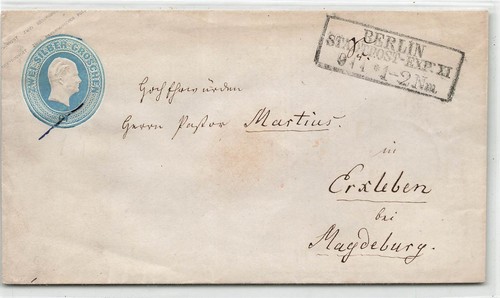 ZWEI SILBER-GROSCHEN
BERLIN
STADTPOST-EXP. XI
1-2 Nm
Hoch Ehrwürden
Herrn Pastor Martius.
in
Erxleben
bei
Magdeburg.